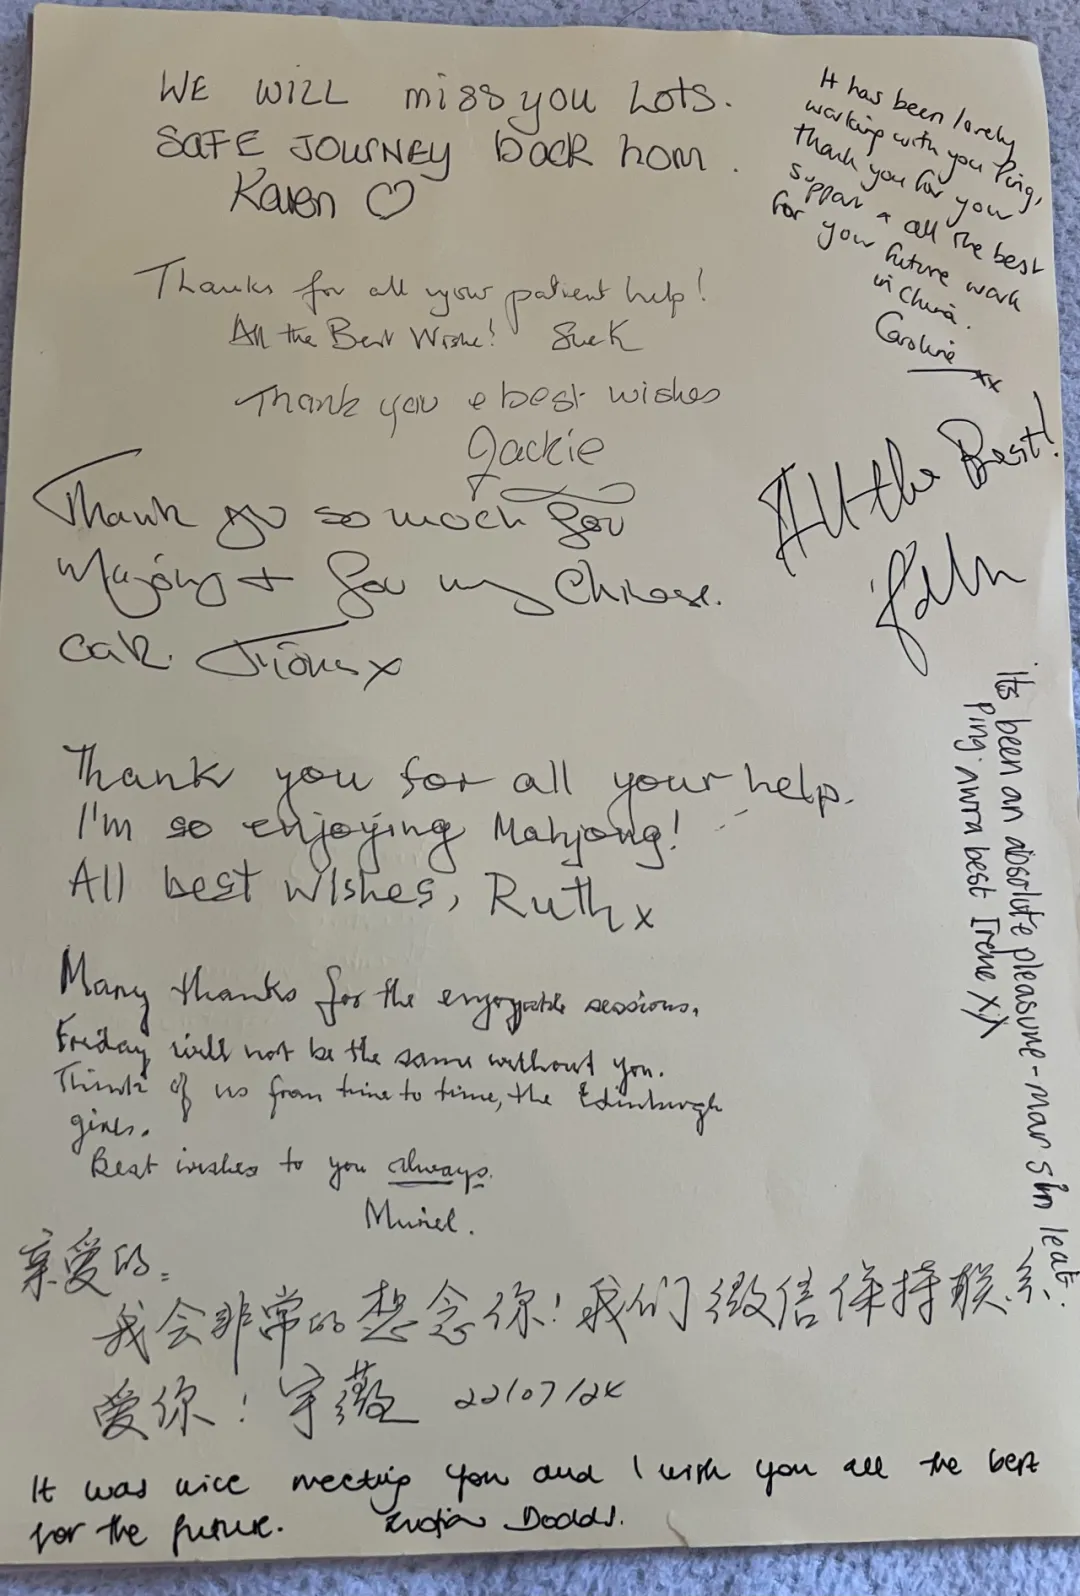 WE WILL miss you Lots.
SAFE JOURNEY back hom.
Karen
It has been lovely
working with you Ping,
thank you for your
support & all the best
for your future work
in China.
Caroline xx
Thanks for all your patient help!
All the Best Wishe! SueK
Thank you & best wishes
Jackie
All the Best!
Thank yo so much for
Majong + for my Chinese.
Thank you for all your help.
I'm so enjoying Mahjong!
All best wishes, Ruth x
its been an absolute pleasure - mar sin leat
Ping best Irene xx
Many thanks for the enjoyable sessions.
Friday will not be the same without you.
Think of us from time to time, the Edinburgh
girls.
Best wishes to you always.
Muriel.
亲爱的:
我会非常的想念你!我们微信保持联系.
爱你!宇薇 22/07/24
It was nice meeting you and I wish you all the best
for the future. Dodds.